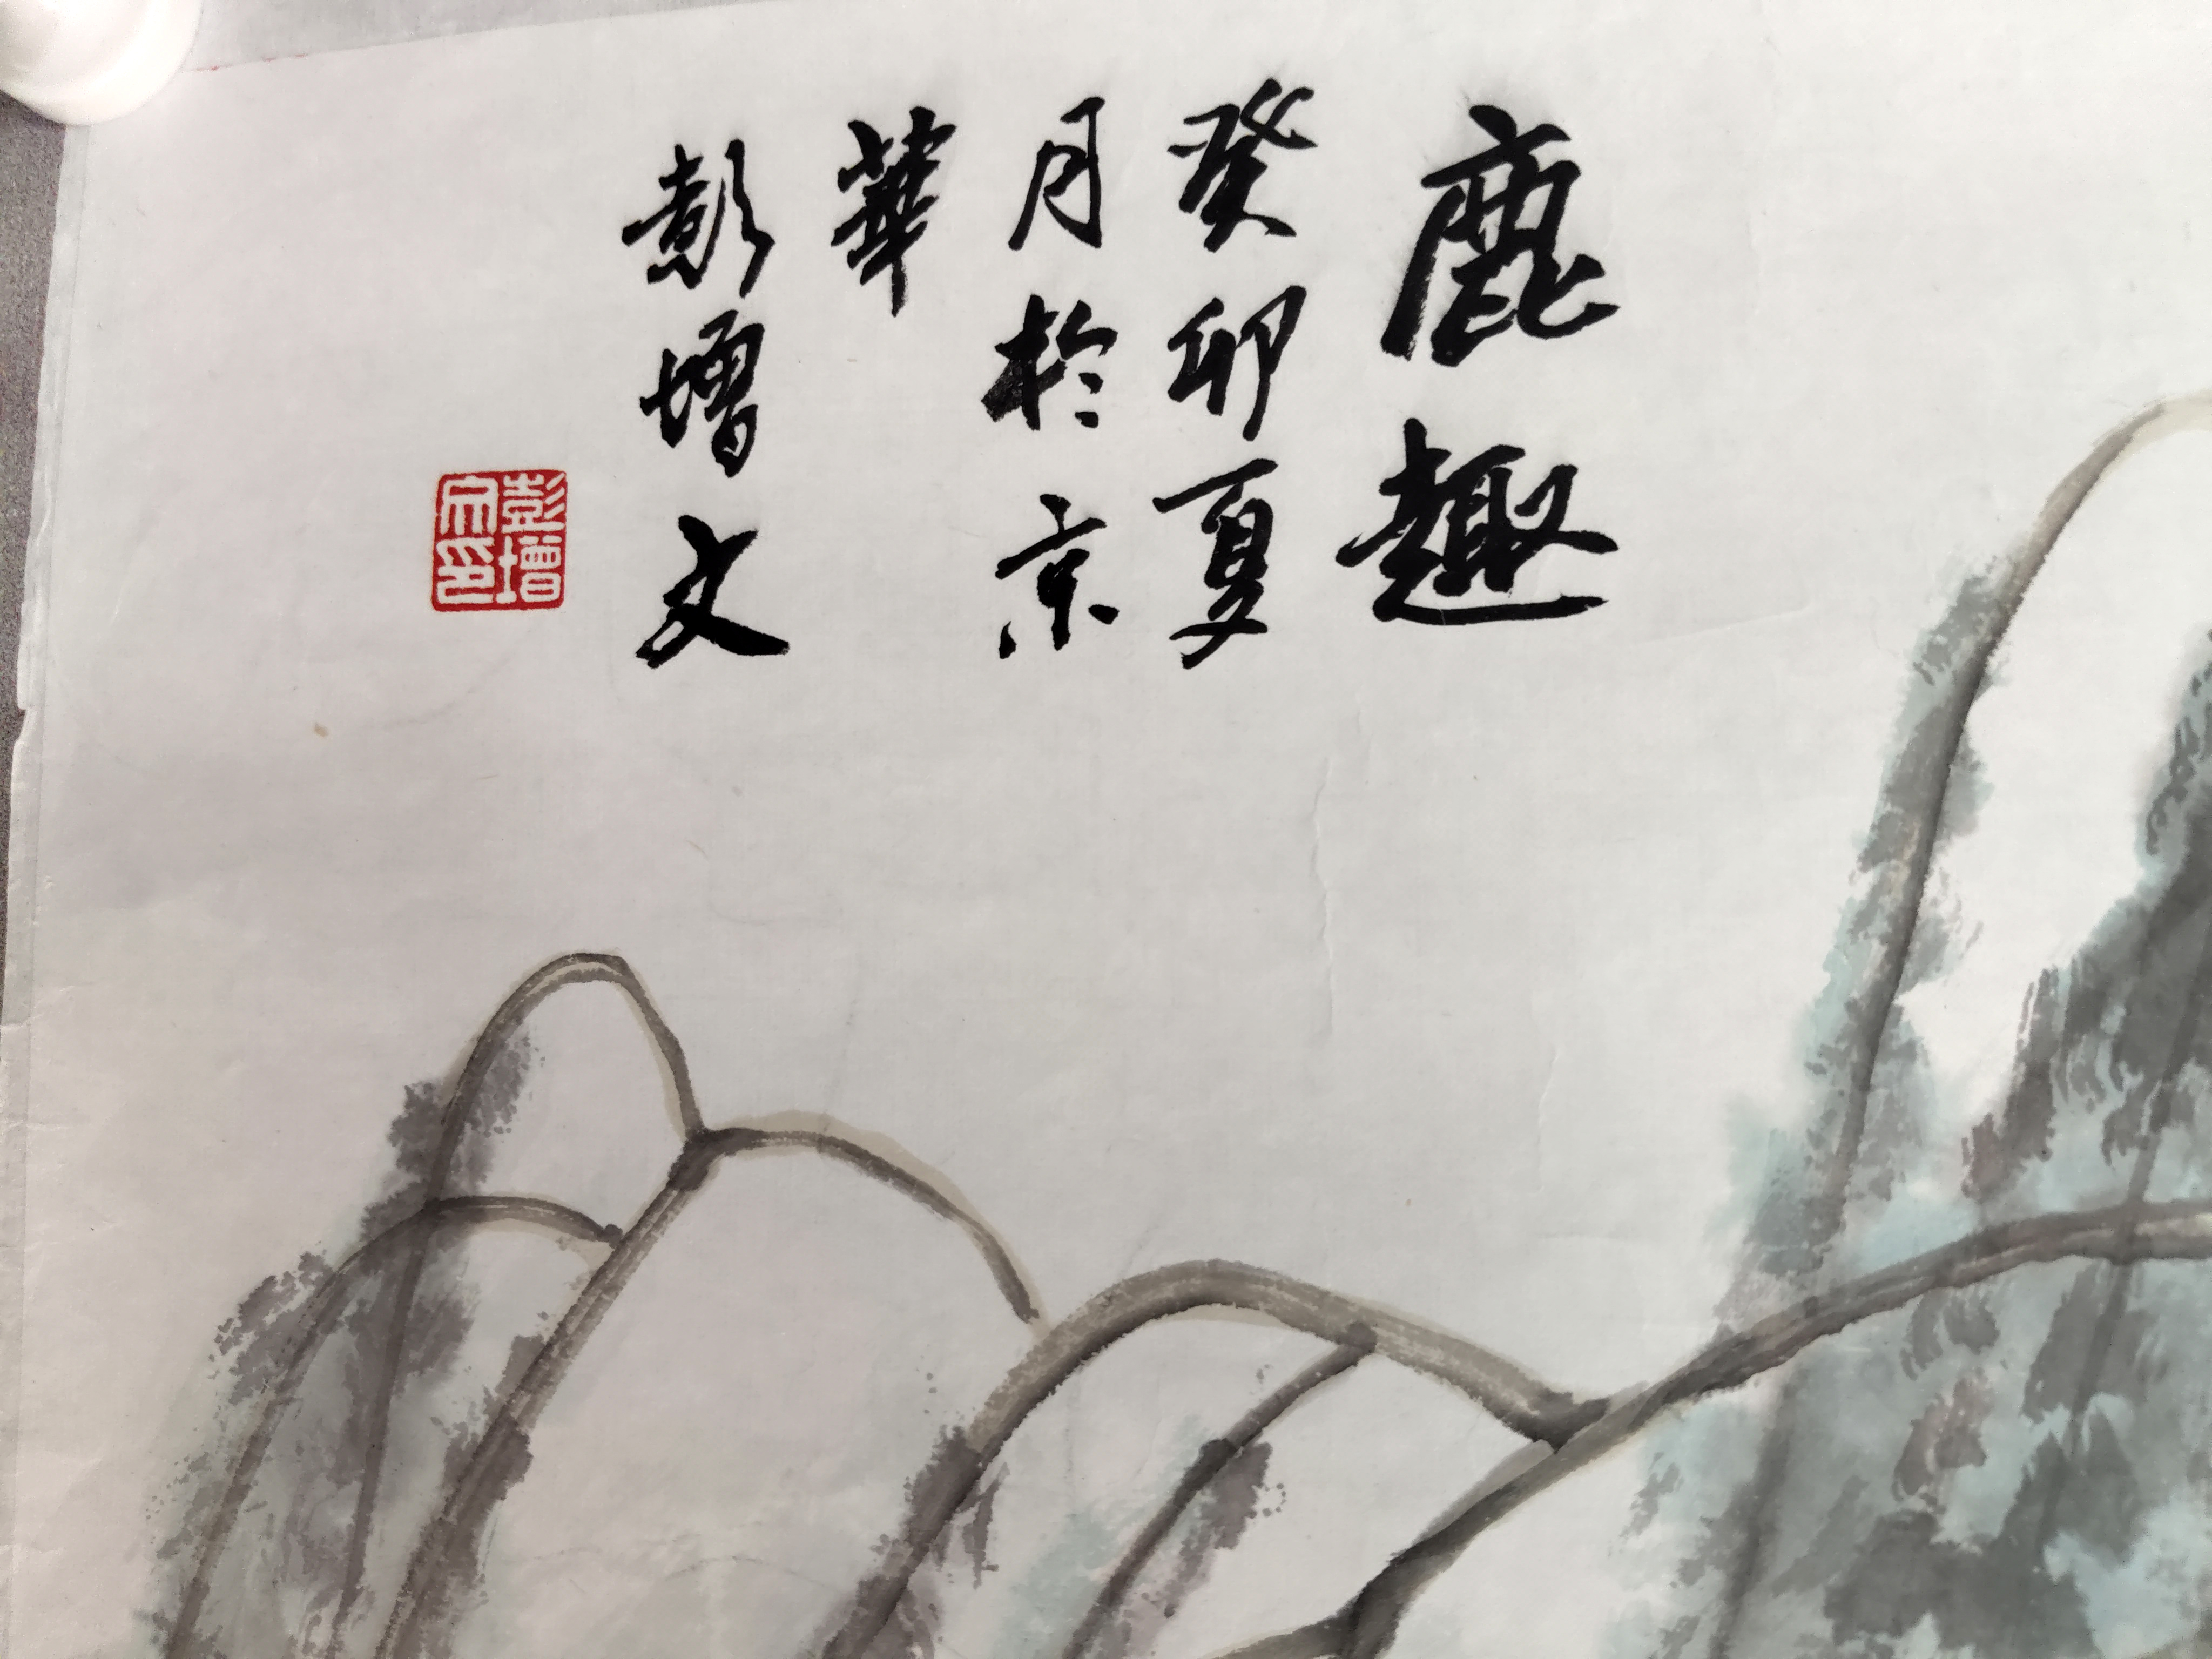 鹿趣
癸卯夏
月於京
華
彭增文
彭增
文印